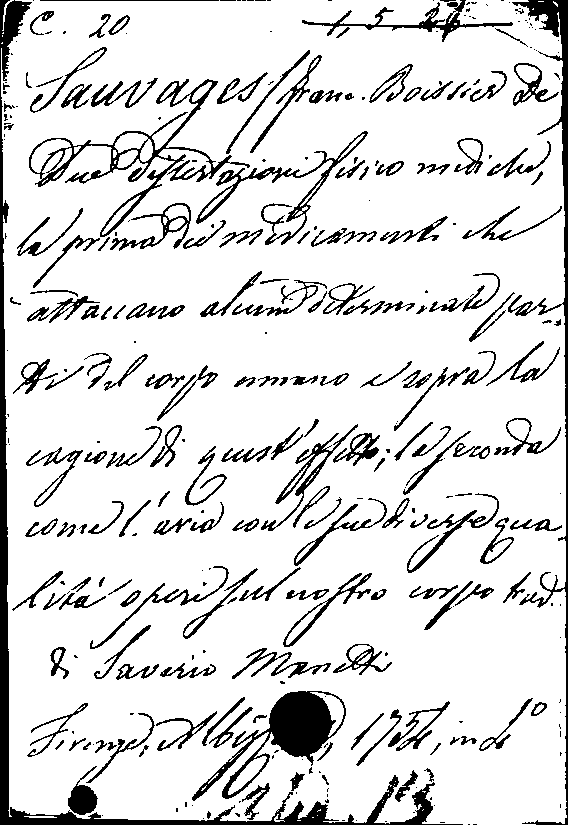 C. 20 1, 5. 26
Sauvages (Franc. Boissier De)
Due dissertazioni fisico mediche,
la prima dei medicamenti che
attaccano alcune determinate par-
ti del corpo umano e sopra la
cagione di quest'effetto; la seconda
come l'aria con le sue diverse qua-
lità operi sul nostro corpo trad.
di Saverio Manetti
Firenze, 1754, in 4º